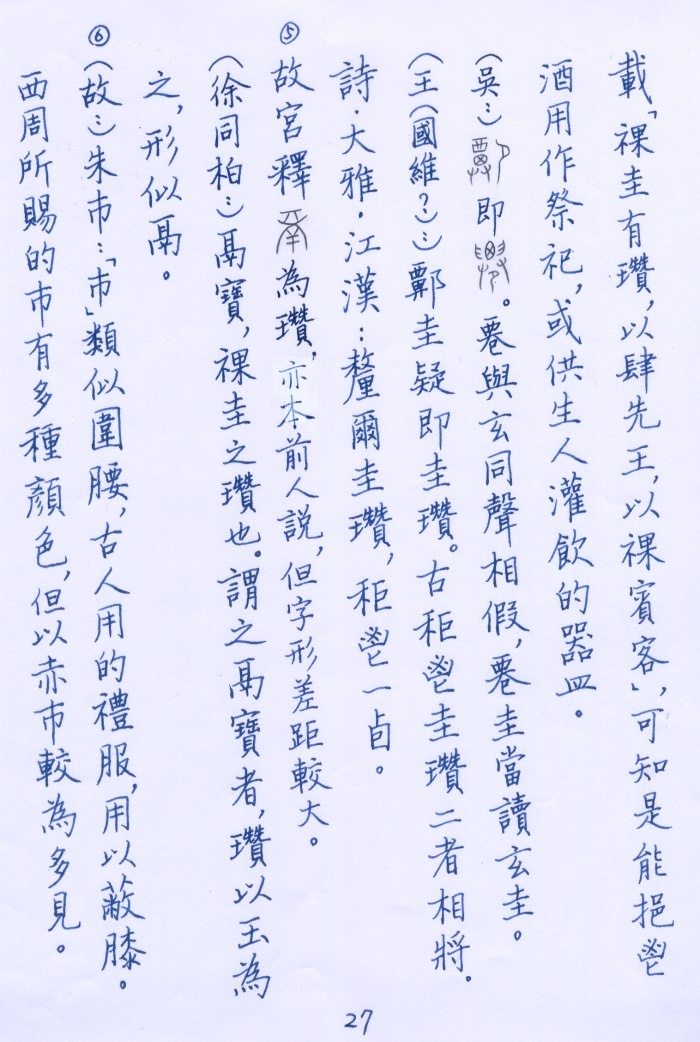 載「祼圭有瓚,以肆先王,以祼賓客」,可知是能挹鬯
酒用作祭祀,或供生人灌飲的器皿。
(吳:)即。䙴與玄同聲相假,䙴圭當讀玄圭。
(王(國維?):)鄭圭疑即圭瓚。古秬鬯圭瓚二者相將.
詩.大雅.江漢:釐爾圭瓚,秬鬯一卣。
⑤故宮釋為瓚,亦本前人說,但字形差距較大。
(徐同柏:)鬲寶,祼圭之瓚也。謂之鬲寶者,瓚以玉為
之,形似鬲。
⑥(故:)朱巿:「巿」類似圍腰,古人用的禮服,用以蔽膝。
西周所賜的巿有多種顏色,但以赤巿較為多見。
27